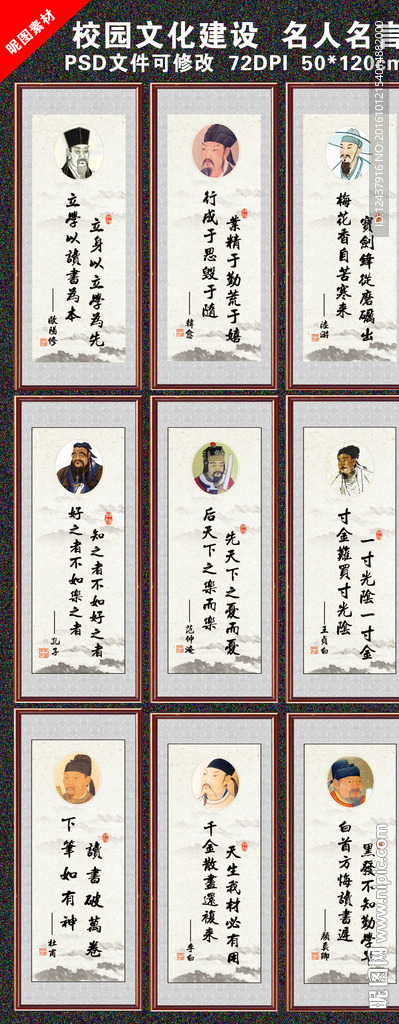 昵图素材
校园文化建设 名人名言
PSD文件可修改 72DPI 50*120cm
立身以立學為先
立學以讀書為本
——歐陽修
業精于勤荒于嬉
行成于思毀于隨
——韓愈
寶劍鋒從磨礪出
梅花香自苦寒來
——陸游
知之者不如好之者
好之者不如樂之者
——孔子
先天下之憂而憂
后天下之樂而樂
——范仲淹
一寸光陰一寸金
寸金難買寸光陰
——王貞白
讀書破萬卷
下筆如有神
——杜甫
天生我材必有用
千金散盡還複來
——李白
黑發不知勤學早
白首方悔讀書遲
——顏真卿
昵图网 www.nipic.com